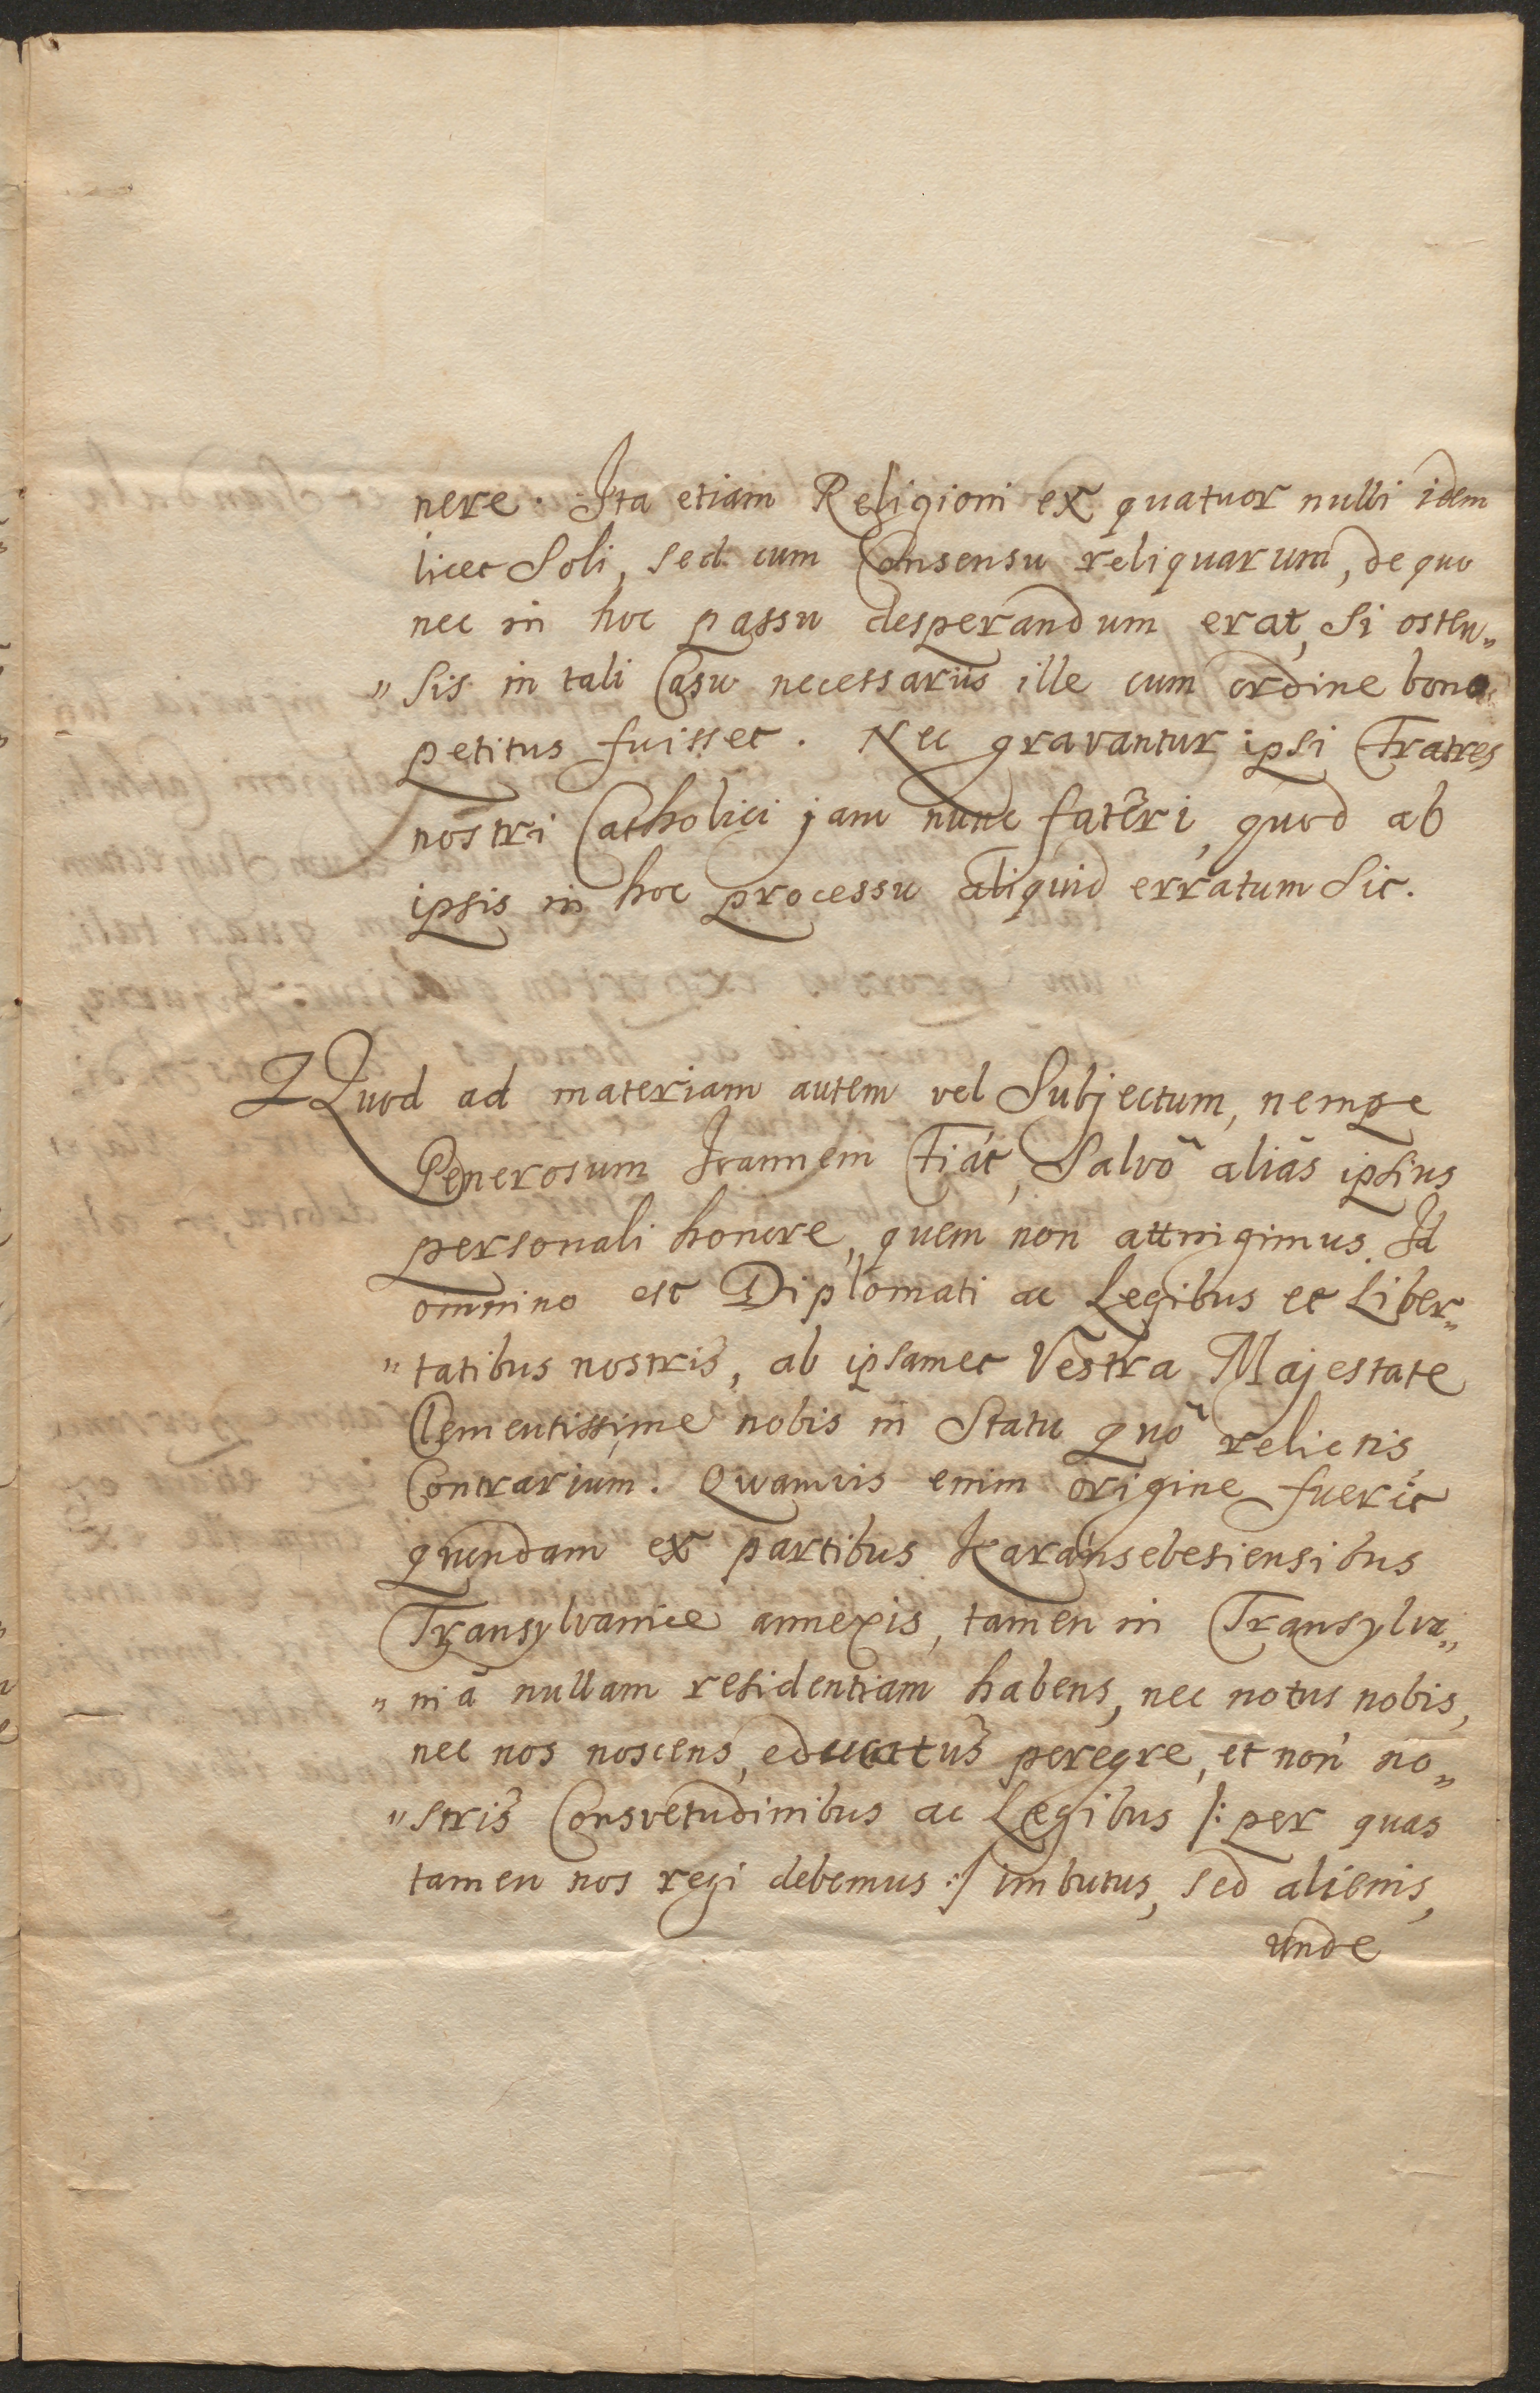 nere. Ita etiam Religioni ex quatuor nulli idem
licet Soli, sed cum Consensu reliquarum, de quo
nec in hoc passu desperandum erat, Si osten„
„sis in tali Casu necessariis ille cum ordine bono
petitus fuisset. Nec gravantur ipsi Fratres
nostri Catholici jam nunc fateri, quod ab
ipsis in hoc processu aliquid erratum Sit.
Quod ad materiam autem vel Subjectum, nempe
Generosum Joannem Fiát, Salvô aliâs ipsius
personali honore, quem non attingimus. Id
omnino est Diplomati ac Legibus et Liber„
„tatibus nostris, ab ipsamet Vestra Majestate
Clementissime nobis in Statu quô relictis,
Contrarium. Quamvis enim origine fuerit
quondam ex partibus Karansebesiensibus
Transylvaniæ annexis, tamen in Transylva„
„niâ nullam residentiam habens, nec notus nobis,
nec nos noscens, educatus peregre, et non no„
„stris Consvetudinibus ac Legibus /: per quas
tamen nos regi debemus :/ imbutus, sed alienis,
unde